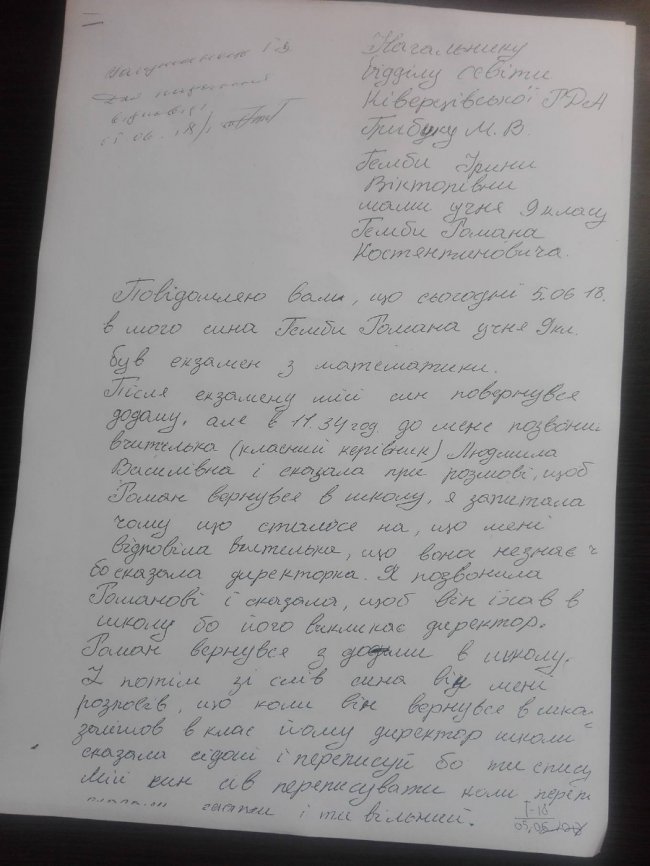 Начальнику
відділу освіти
Ківерцівської РДА
Грибуку М. В.
Гемби Ірини
Вікторівни
мами учня 9 класу
Гемби Романа
Костентиновича.
відповіді
Повідомляю вам, що сьогодні 5.06 18.
в мого сина Гемби Романа учня 9 кл.
був екзамен з математики.
Після екзамену мій син повернувся
додому, але в 11.34 год до мене позвонил
вчителька (класний керівник) Людмила
Василівна і сказала при розмові, щоб
Роман вернувся в школу, я запитала
чому що сталося на, що мені
відповіла вчителька, що вона незнає
бо сказала директорка. Я позвонила
Романові і сказала, щоб він їхав в
школу бо його викликає директор.
Роман вернувся з додоми в школу.
І потім зі слів сина він мені
розповів, що коли він вернувся в школ
зайшов в клас йому директор школи
сказала сідай і переписуй бо ти спису
Мій син сів переписувати коли переп
і ти вільний.